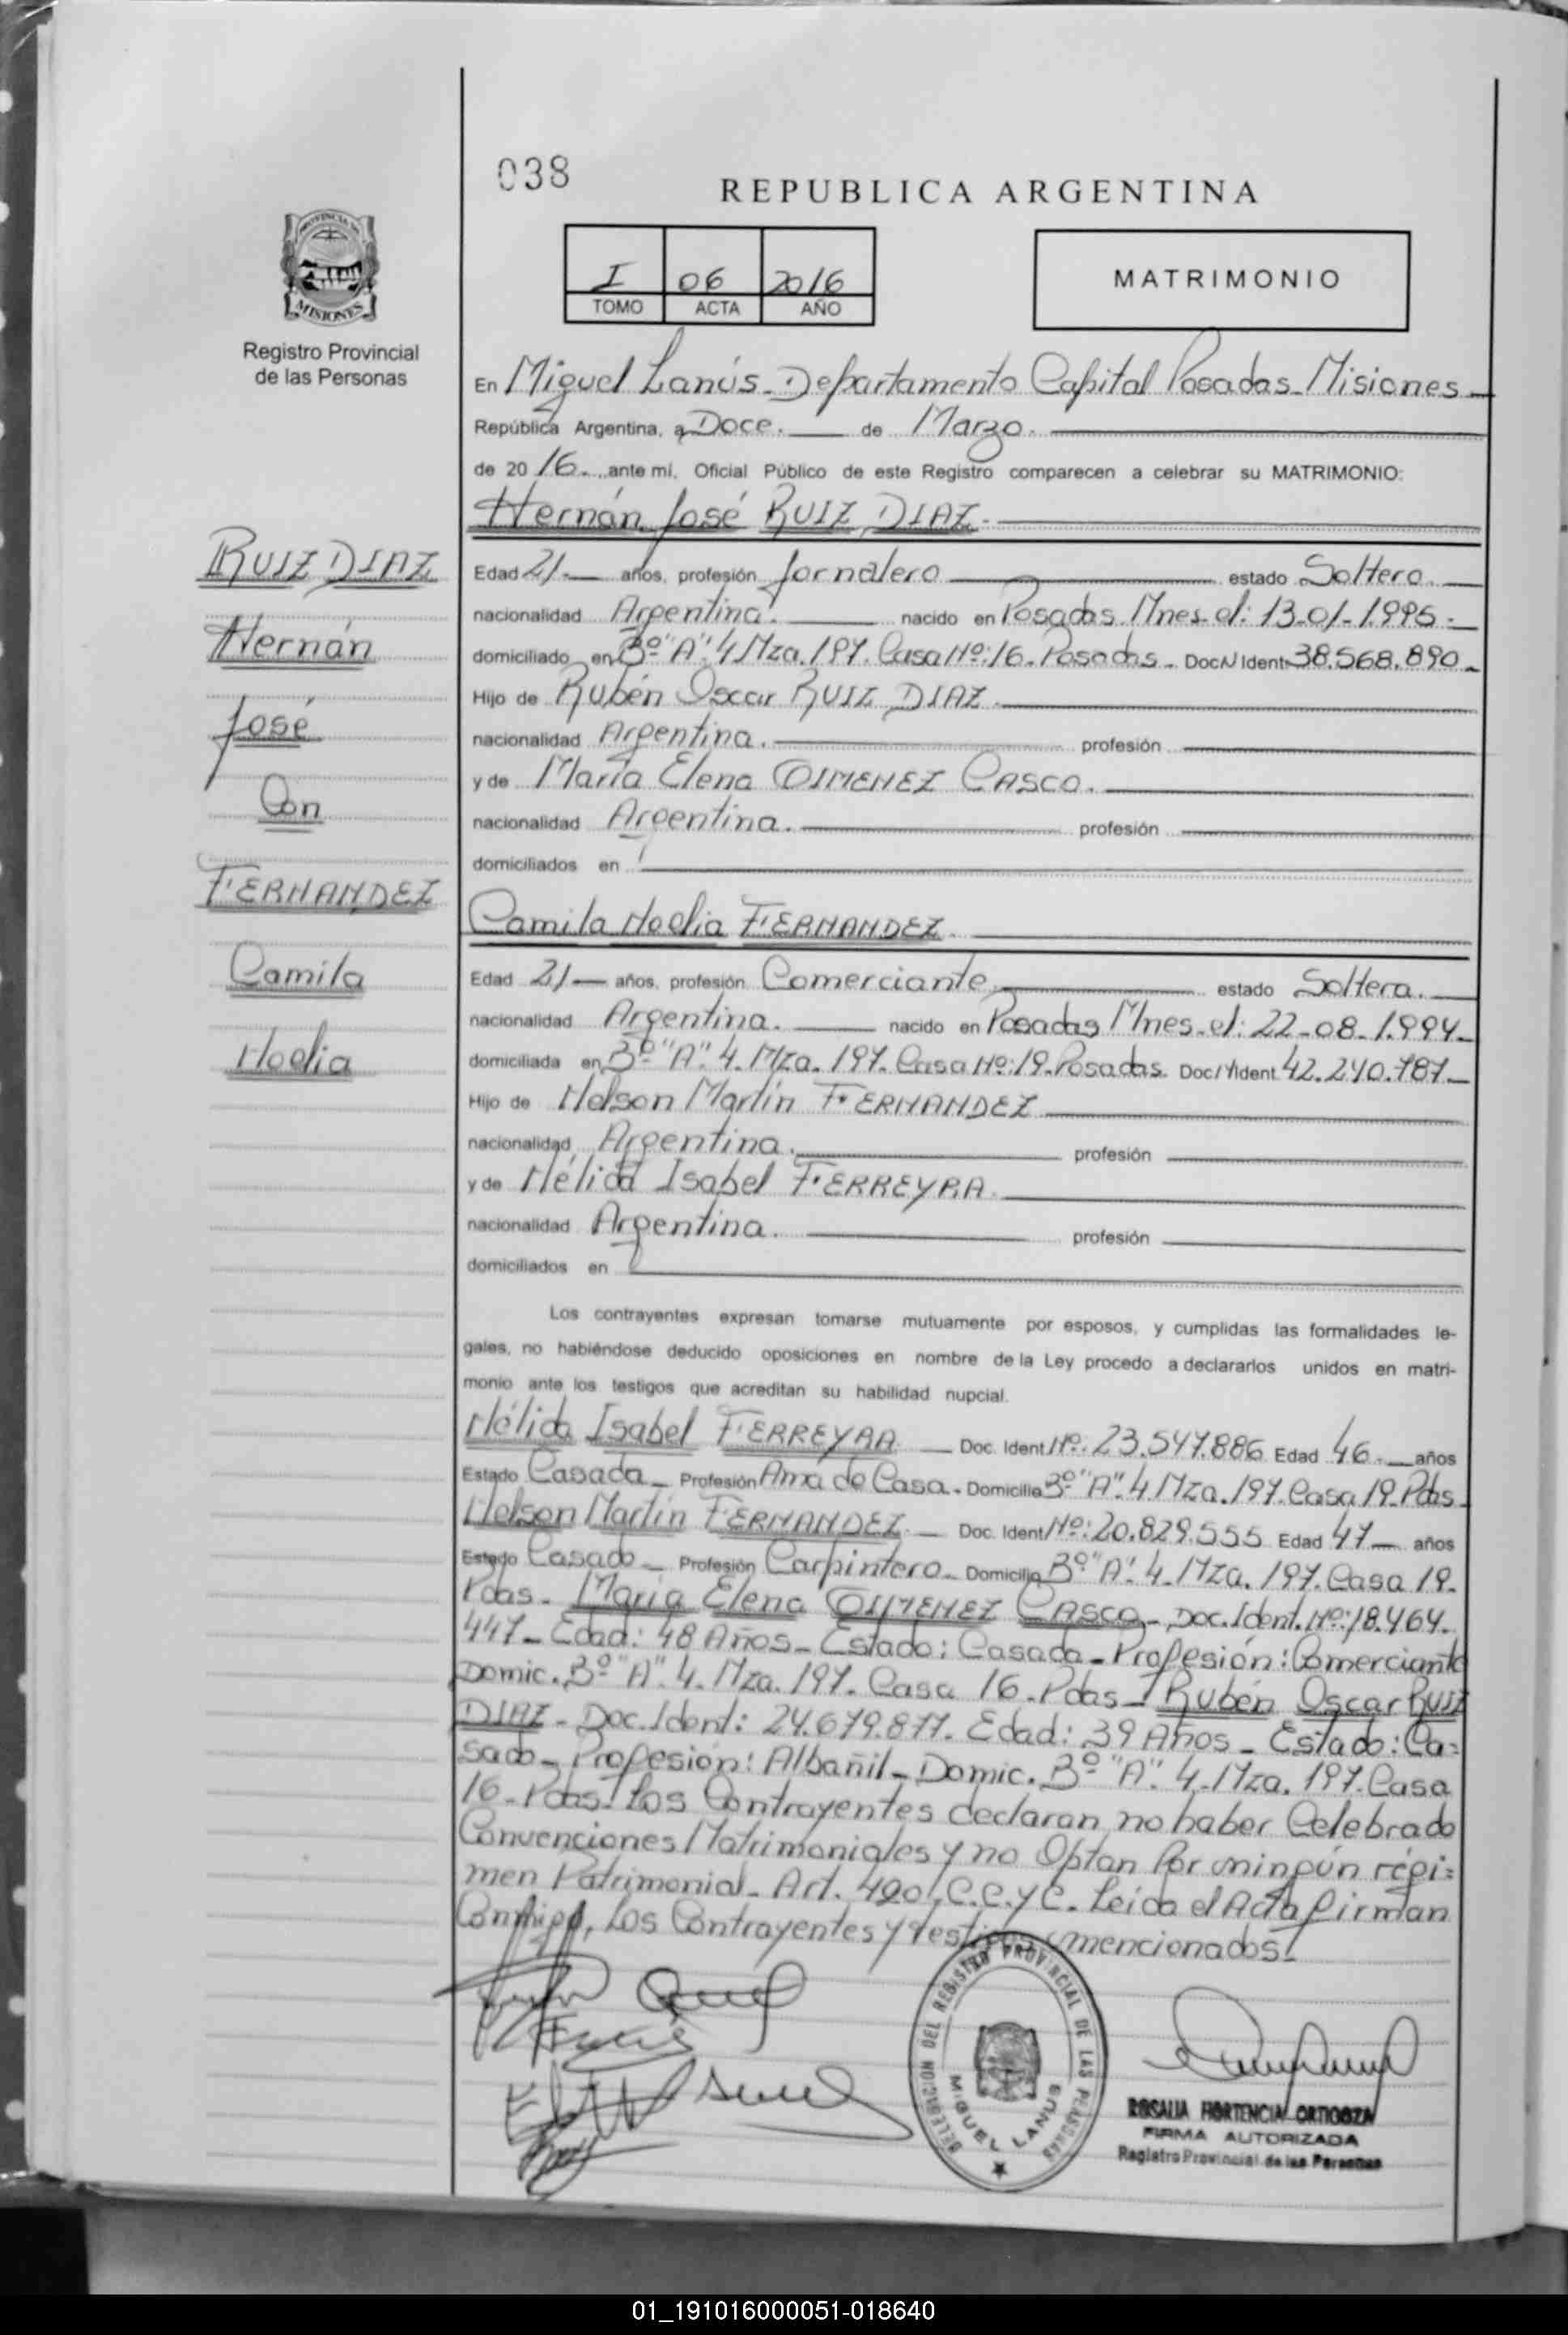 038
REPUBLICA ARGENTINA
I 06 2016
TOMO ACTA AÑO
MATRIMONIO
PROVINCIA DE
MISIONES
Registro Provincial
de las Personas
RUIZ DIAZ
Hernán
José
Con
FERNANDEZ
Camila
Noelia
En Miguel Lanús - Departamento Capital Posadas - Misiones
República Argentina, a Doce. de Marzo.
de 20 16. ante mí, Oficial Público de este Registro comparecen a celebrar su MATRIMONIO:
Hernán José RUIZ DIAZ.
Edad 21 años, profesión Jornalero estado Soltero.
nacionalidad Argentina. nacido en Posadas Mnes. el: 13-01-1.995.
domiciliado en Bº "A" 4 Mza. 197. Casa Nº: 16. Posadas. Doc N Ident 38.568.890
Hijo de Rubén Oscar RUIZ DIAZ.
nacionalidad Argentina. profesión
y de María Elena GIMENEZ CASCO.
nacionalidad Argentina. profesión
domiciliados en
Camila Noelia FERNANDEZ.
Edad 21 años, profesión Comerciante. estado Soltera.
nacionalidad Argentina. nacido en Posadas Mnes. el: 22-08-1.994
domiciliada en Bº "A". 4. Mza. 197. Casa Nº: 19. Posadas. Doc N Ident 42.240.787
Hijo de Nelson Martín FERNANDEZ
nacionalidad Argentina. profesión
y de Nélida Isabel FERREYRA.
nacionalidad Argentina. profesión
domiciliados en
Los contrayentes expresan tomarse mutuamente por esposos, y cumplidas las formalidades le-
gales, no habiéndose deducido oposiciones en nombre de la Ley procedo a declararlos unidos en matri-
monio ante los testigos que acreditan su habilidad nupcial.
Nélida Isabel FERREYRA. Doc. Ident Nº: 23.547.886 Edad 46. años
Estado Casada Profesión Ama de Casa. Domicilio Bº "A". 4 Mza. 197. Casa 19. Pdas.
Nelson Martín FERNANDEZ. Doc. Ident Nº: 20.829.555 Edad 47 años
Estado Casado Profesión Carpintero. Domicilio Bº "A". 4. Mza. 197. Casa 19.
Pdas. María Elena GIMENEZ CASCO - Doc. Ident. Nº: 18.464.
447 - Edad: 48 Años - Estado: Casada - Profesión: Comerciante
Domic. Bº "A". 4. Mza. 197. Casa 16. Pdas - Rubén Oscar RUIZ
DIAZ - Doc. Ident: 24.679.877. Edad: 39 Años - Estado: Ca=
sado - Profesión: Albañil - Domic. Bº "A". 4. Mza. 197. Casa
16. Pdas. Los Contrayentes declaran no haber Celebrado
Convenciones Matrimoniales y no Optan Por ningún régi=
men Patrimonial - Art. 420 C.C.y C. Leida el Acta firman
Conmigo, los Contrayentes y testigos mencionados.
DELEGACION DEL REGISTRO PROVINCIAL DE LAS PERSONAS
MIGUEL LANUS
ROSALIA HORTENCIA ORTIGOZA
FIRMA AUTORIZADA
Registro Provincial de las Personas
01_191016000051-018640